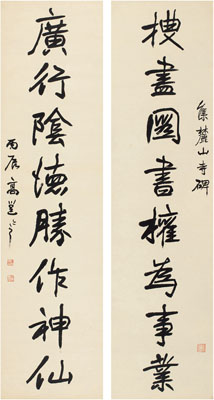 集麓山寺碑
搜盡圖書擁為事業
廣行陰德勝作神仙
丙辰高邕